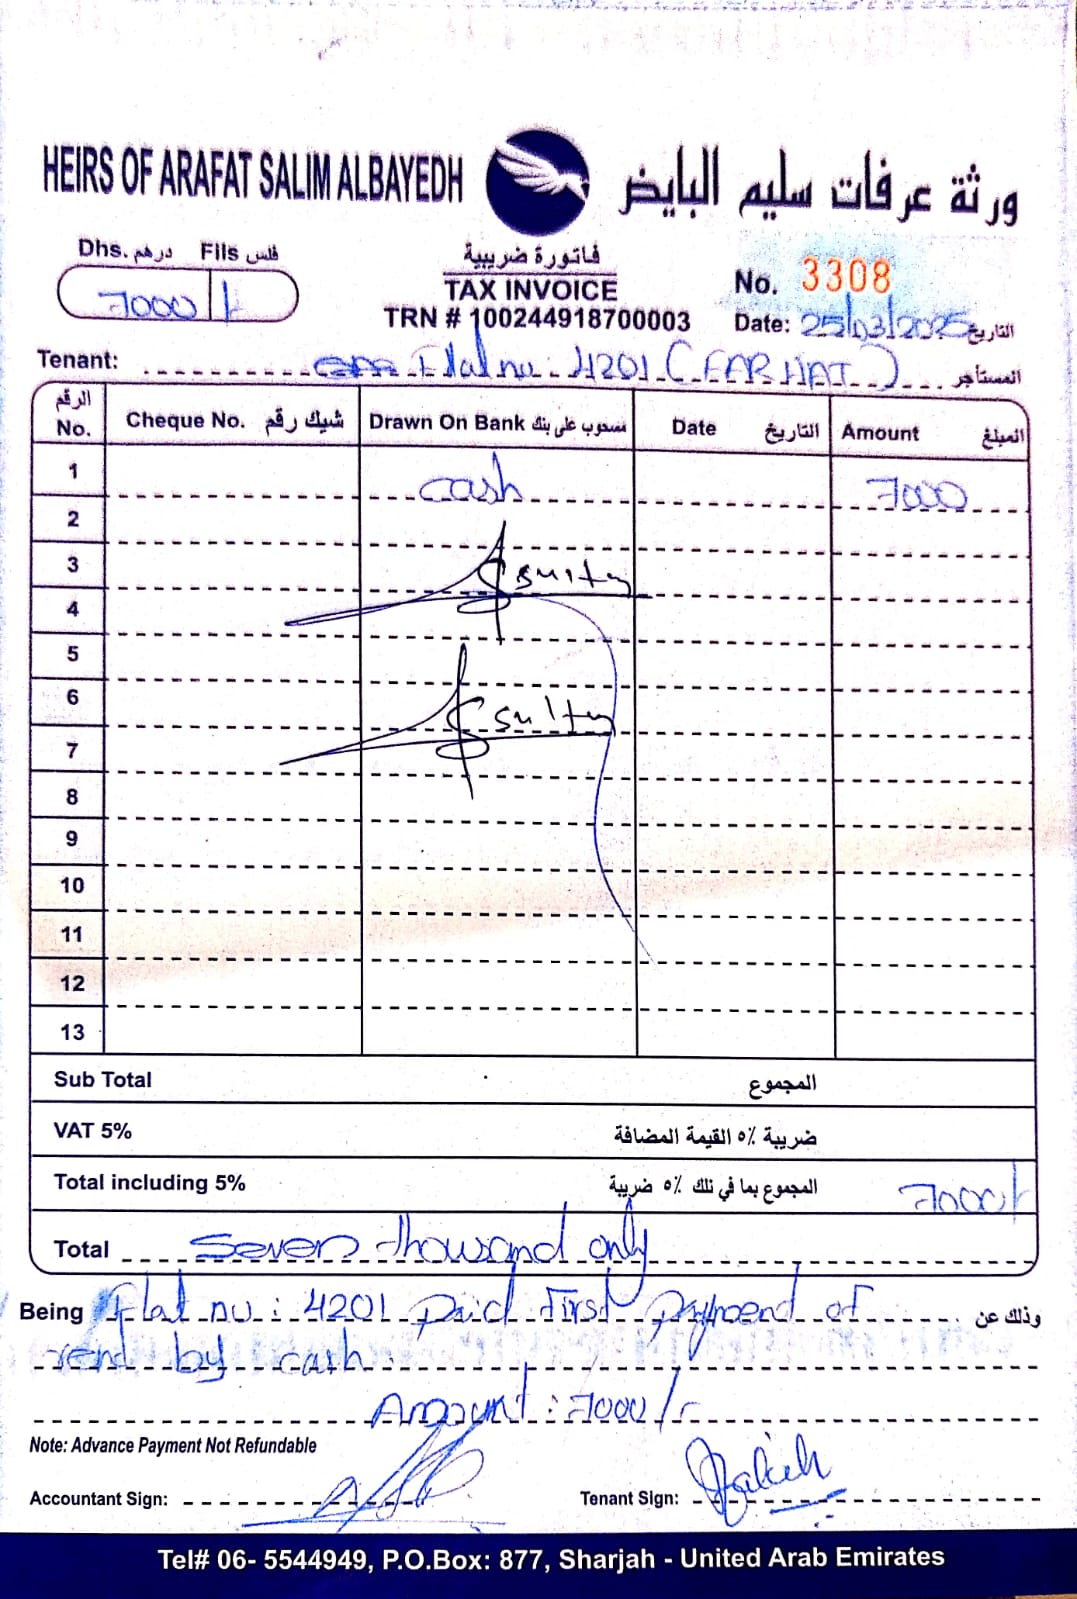 HEIRS OF ARAFAT SALIM ALBAYEDH ورثة عرفات سليم البايض
Dhs. درهم Fils فلس
7000/-
فاتورة ضريبية
TAX INVOICE
TRN # 100244918700003
No. 3308
Date: 25/03/2025 التاريخ
Tenant: Flat nu: 4201 (FARHAT) المستأجر
الرقم No. Cheque No. شيك رقم Drawn On Bank مسحوب على بنك Date التاريخ Amount المبلغ
1 cash 7000
2
3
4
5
6
7
8
9
10
11
12
13
Sub Total المجموع
VAT 5% ضريبة ٥٪ القيمة المضافة
Total including 5% المجموع بما في تلك ٥٪ ضريبة 7000/-
Total seven thousand only
Being Flat nu: 4201 paid first paymend of وذلك عن
rend by cash.
Amount: 7000/-
Note: Advance Payment Not Refundable
Accountant Sign: Tenant Sign:
Tel# 06- 5544949, P.O.Box: 877, Sharjah - United Arab Emirates